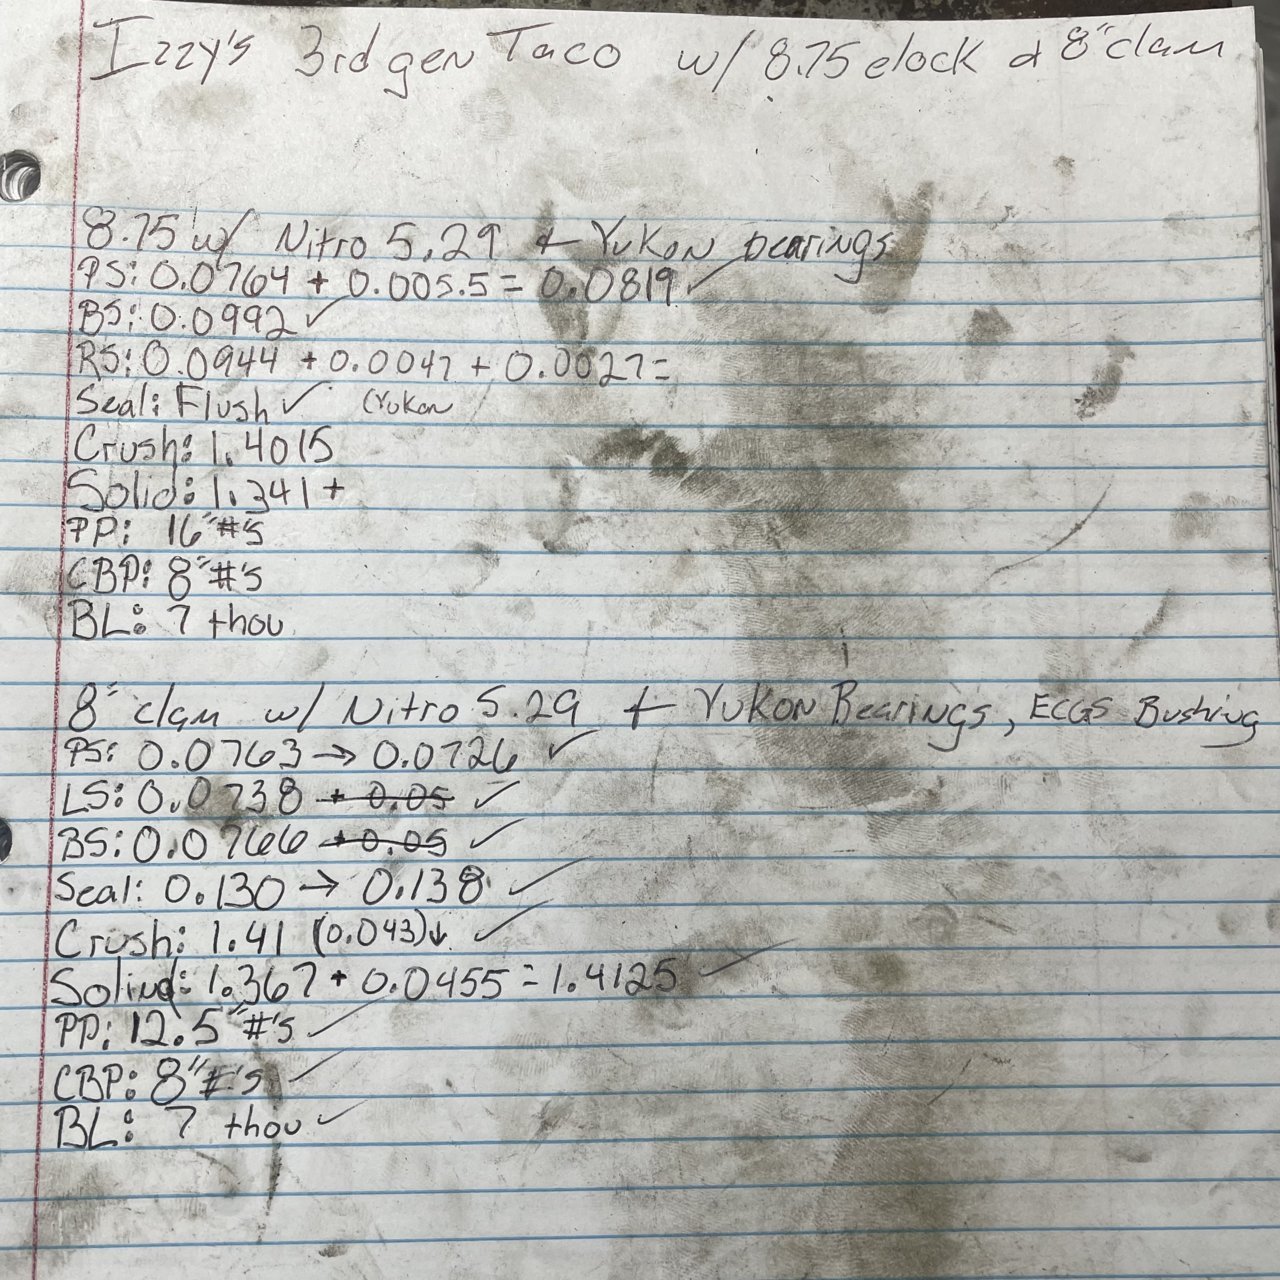 Izzy's 3rd gen Taco w/ 8.75 elock & 8" clam
8.75 w/ Nitro 5.29 + Yukon bearings
PS: 0.0764 + 0.005.5 = 0.0819 ✓
BS: 0.0992 ✓
RS: 0.0944 + 0.0047 + 0.0027 =
Seal: Flush ✓ (Yukon
Crush: 1.4015
Solid: 1.341 +
PP: 16"#'s
CBP: 8"#'s
BL: 7 thou
8" clam w/ Nitro 5.29 + Yukon Bearings, ECGS Bushing
PS: 0.0763 → 0.0726 ✓
LS: 0.0738 + 0.05 ✓
BS: 0.0766 + 0.05 ✓
Seal: 0.130 → 0.138 ✓
Crush: 1.41 (0.043)↓ ✓
Solind: 1.367 + 0.0455 = 1.4125 ✓
PP: 12.5"#'s ✓
CBP: 8"#'s ✓
BL: 7 thou ✓